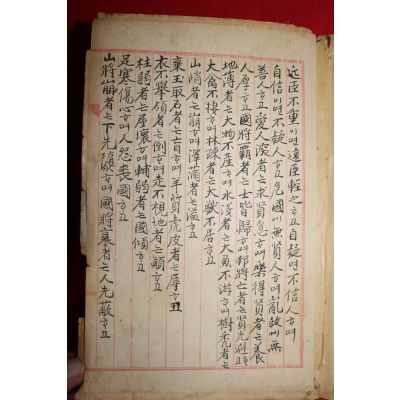 近臣不重이면遠臣輕之하고自疑면不信人하며
自信이면不疑人하고危國에無賢人하며亂政에無
善人하고愛人深者는求賢急하며樂得賢者는養
人厚하고國將覇者는士皆歸하며邦將亡者는賢先避하고
地薄者는大物不産하며水淺者는大魚不游하며樹禿者는
大禽不棲하며林疎者는大獸不居하고
山峭者는崩하며澤滿者는溢하고
棄玉取石者는盲하고羊質虎皮者는辱하고
衣不擧領者는倒하며走不視地者는顚하고
柱弱者는屋壞하며輔弱者는國傾하고
足寒傷心하며人怨喪國하고
山將崩者는下先隳하며國將衰者는人先敝하고